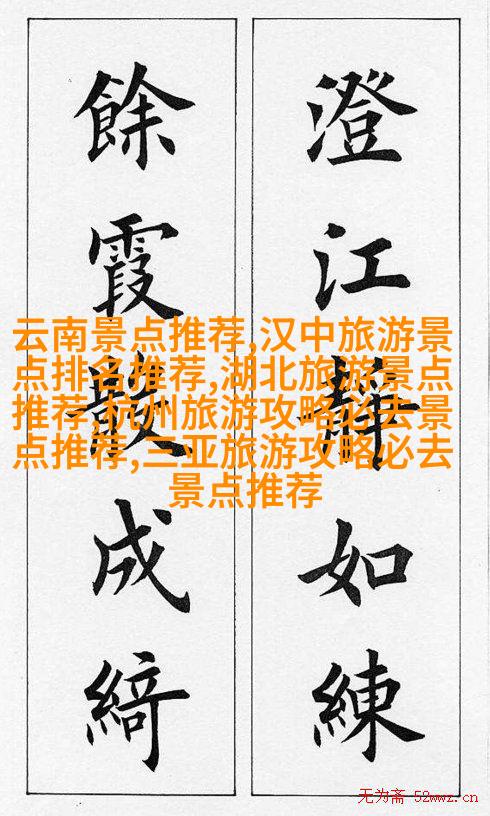 餘霞散成綺
澄江靜如練
云南景点推荐,汉中旅游景
点排名推荐,湖北旅游景点
推荐,杭州旅游攻略必去景
点推荐,三亚旅游攻略必去
景点推荐
无为斋 52wwz.cn